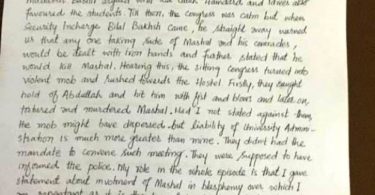 favoured the students Till then, the Congress was calm but when
Security Incharge Bilal Bakhsh came, he straight away warned
that any one taking side of Mashal and his comrades,
would be dealt with iron hands and further stated that he
would kill Mashal. Hearing this, the sitting Congress turned into
violent mob and rushed towards the Hostel Firstly, they caught
hold of Abdullah and hit him with fist and blows and later on,
tortured and murdered Mashal. Had I not stated against them,
the mob might have dispersed but liability of University Admini-
stration is much more greater than mine. They didn't had the
mandate to convene such meeting. They were supposed to have
informed the police. My role in the whole episode is that I gave
statement about involment of Mashal in blasphemy over which I